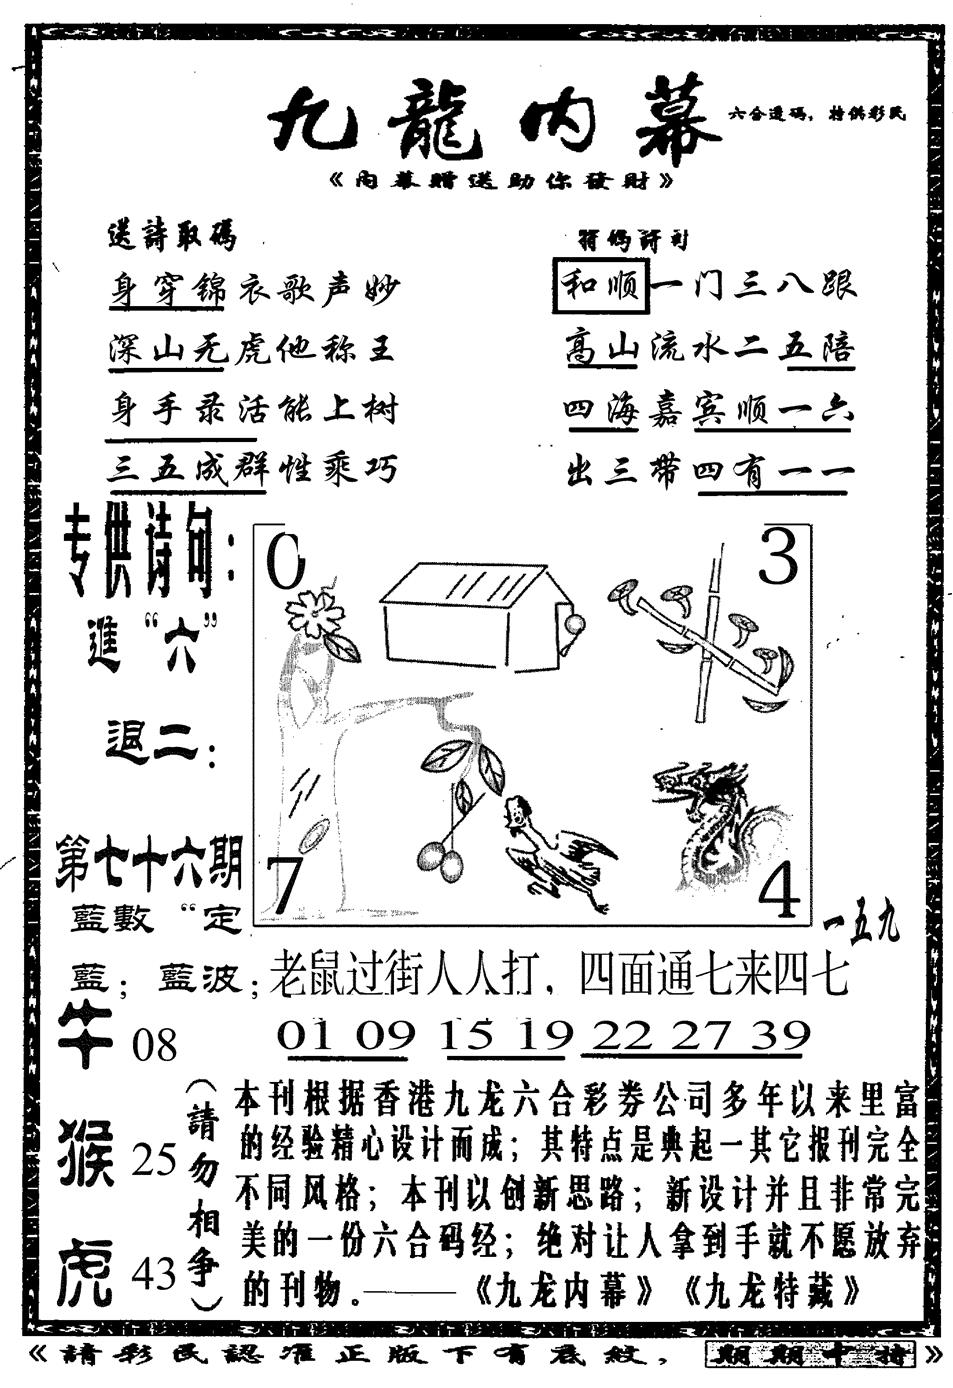 九龍内幕
六合透码，特供彩民
《内幕贈送助你發財》
送詩取碼
身穿锦衣歌声妙
深山无虎他称王
身手录活能上树
三五成群性乘巧
特碼詩句
和顺一门三八跟
高山流水二五陪
四海嘉宾顺一六
出三带四有一一
专供诗句：
進“六”
退二：
第七十六期
藍數“定
藍；藍波；
0
3
7
4
一五九
老鼠过街人人打，四面通七来四七
01 09 15 19 22 27 39
牛 08
猴 25
虎 43
（請勿相争）
本刊根据香港九龙六合彩券公司多年以来里富
的经验精心设计而成；其特点是典起一其它报刊完全
不同风格；本刊以创新思路；新设计并且非常完
美的一份六合码经；绝对让人拿到手就不愿放弃
的刊物。——《九龙内幕》《九龙特藏》
《請彩民認准正版下有底紋，期期中特》